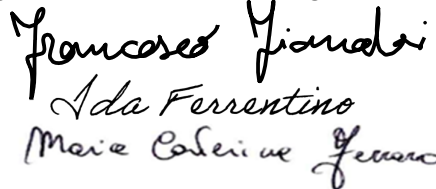 Francesco
Ida Ferrentino
Maria Caterina Ferraro